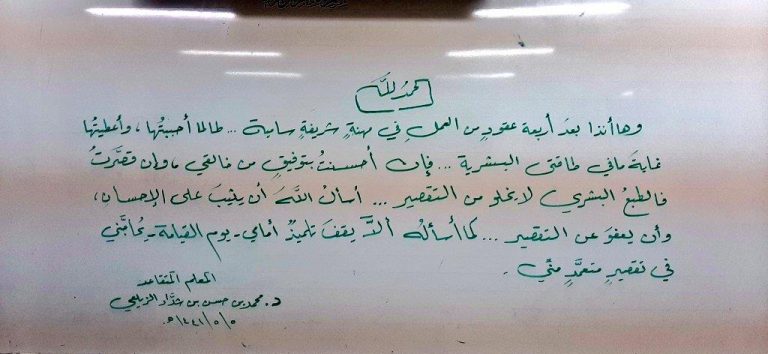 الحمدُ للهِ
وها أنذا بعدَ أربعة عقودٍ من العملِ في مهنةٍ شريفةٍ سامية ... طالما أحببتُها، وأعطيتُها
غاية ما في طاقتي البشرية ... فإن أحسنتُ بتوفيقٍ من خالقي، وإن قصَّرتُ
فالطبعُ البشري لا يخلو من التقصير ... أسألُ اللهَ أن يثيبَ على الإحسان،
وأن يعفوَ عن التقصير ... كما أسألُه ألاَّ يقفَ تلميذٌ أمامي - يوم القيامة - يحاجُّني
في تقصيرٍ متعمَّدٍ منّي.
المعلم المتقاعد
د. محمد بن حسن بن حدَّاد الزيلعي